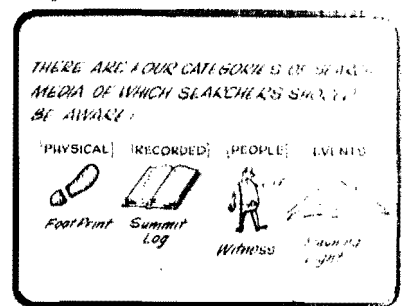 THERE ARE FOUR CATEGORIES OF SEARCH
MEDIA OF WHICH SEARCHERS SHOULD
BE AWARE:
PHYSICAL RECORDED PEOPLE EVENTS
Foot Print Summit Log Witness Flashing Light